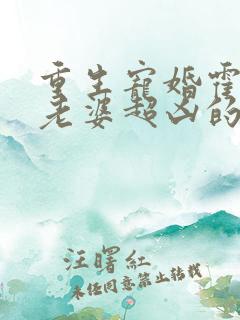 重生宠婚霍
老婆超凶的
汪曙红
未经同意禁止转载